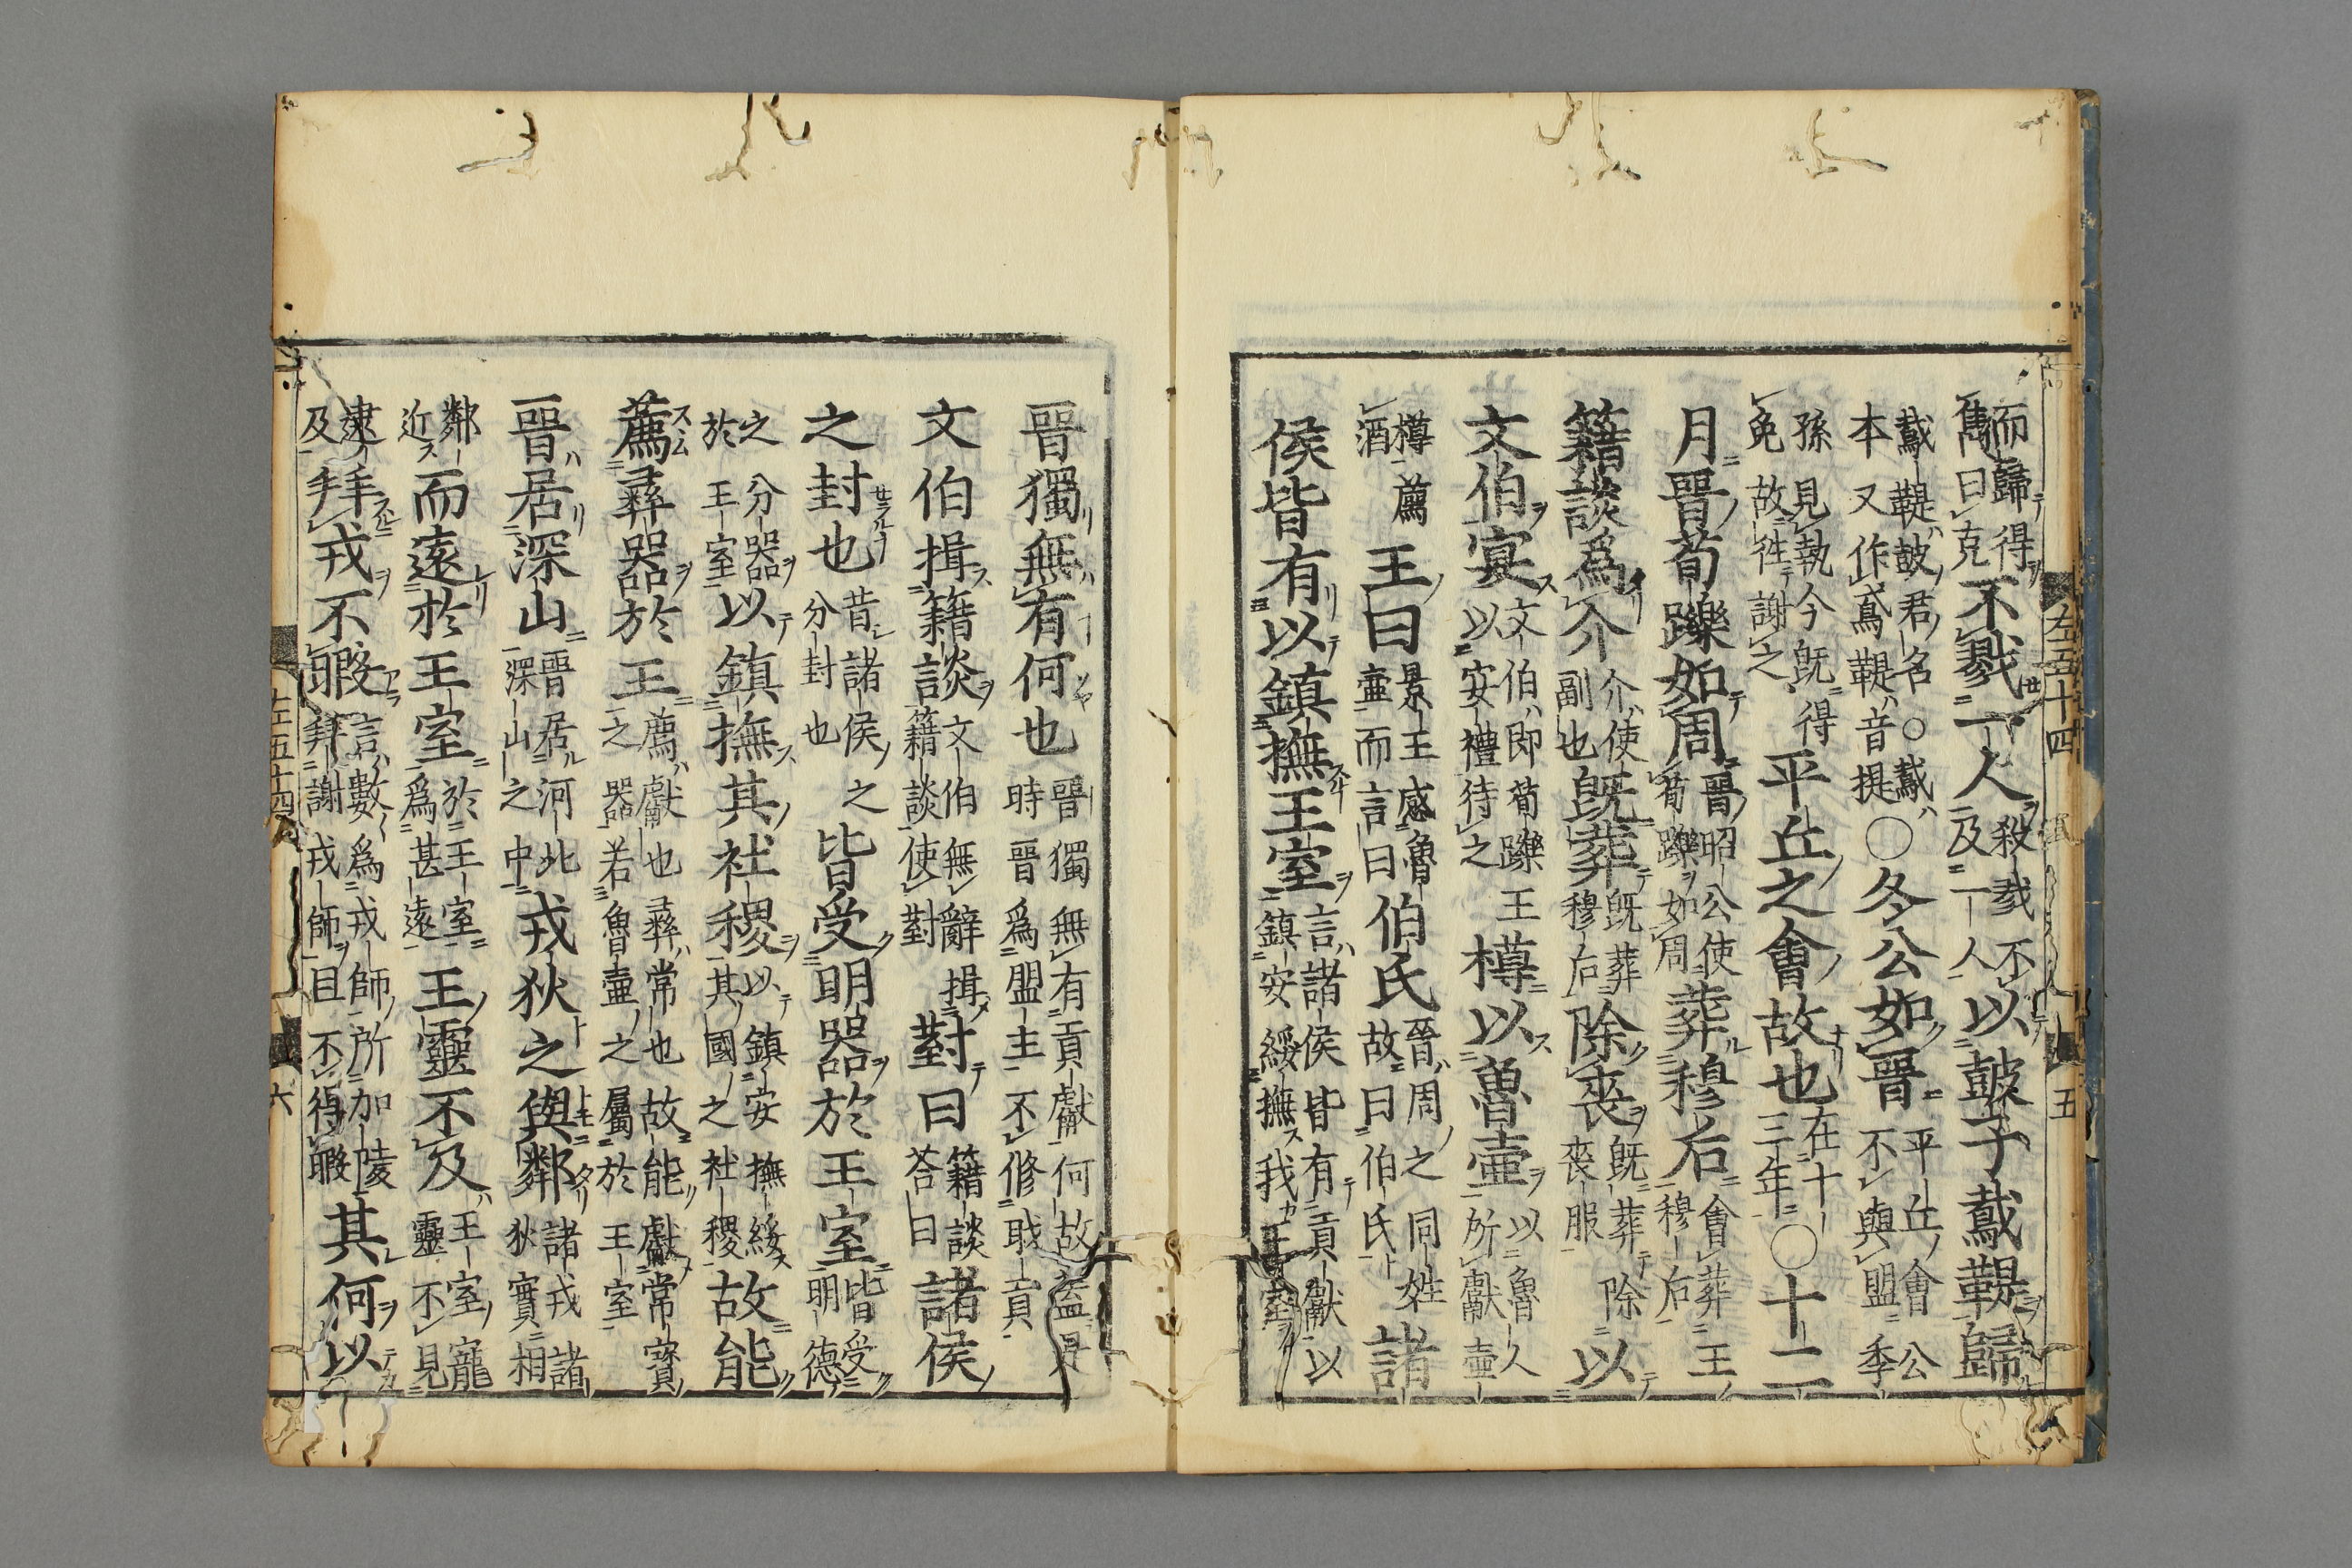 左五十四 五
而歸得雋曰克不戮一人殺戮不及一人以鼓子䳒鞮歸
䳒鞮鼓君名○䳒本又作鳶鞮音提○冬公如晉平丘會公不與盟季
孫見執今既得免故徃謝之平丘之會故也在十三年○十二
月晉荀躒如周晉昭公使荀躒如周葬穆后會葬王穆后
籍談爲介介使副也既葬既葬穆后除喪既葬除喪服以
文伯宴文伯即荀躒王以安禮待之樽以魯壺以魯人所獻壺
樽薦酒王曰景王感魯壺而言曰伯氏晉周之同姓故曰伯氏諸
侯皆有以鎮撫王室言諸侯皆有貢獻以鎮安綏撫我王室
晉獨無有何也晉獨無有貢獻何故蓋是時晉爲盟主不修職貢
文伯揖籍談文伯無辭揖籍談使對對曰籍談荅曰諸侯
之封也昔諸侯之分封也皆受明器於王室皆受明德
之分器於王室以鎮撫其社稷以鎮安撫綏其國之社稷故能
薦彝器於王薦獻也彝常也故能獻常寶之器若魯壺之屬於王室
晉居深山晉居河北深山之中戎狄之與鄰諸戎諸狄實相
鄰近而遠於王室於王室爲甚遠王靈不及王室寵靈不見
逮及拜戎不暇言數爲戎師所加陵拜謝戎師且不得暇其何以
左五十四 六